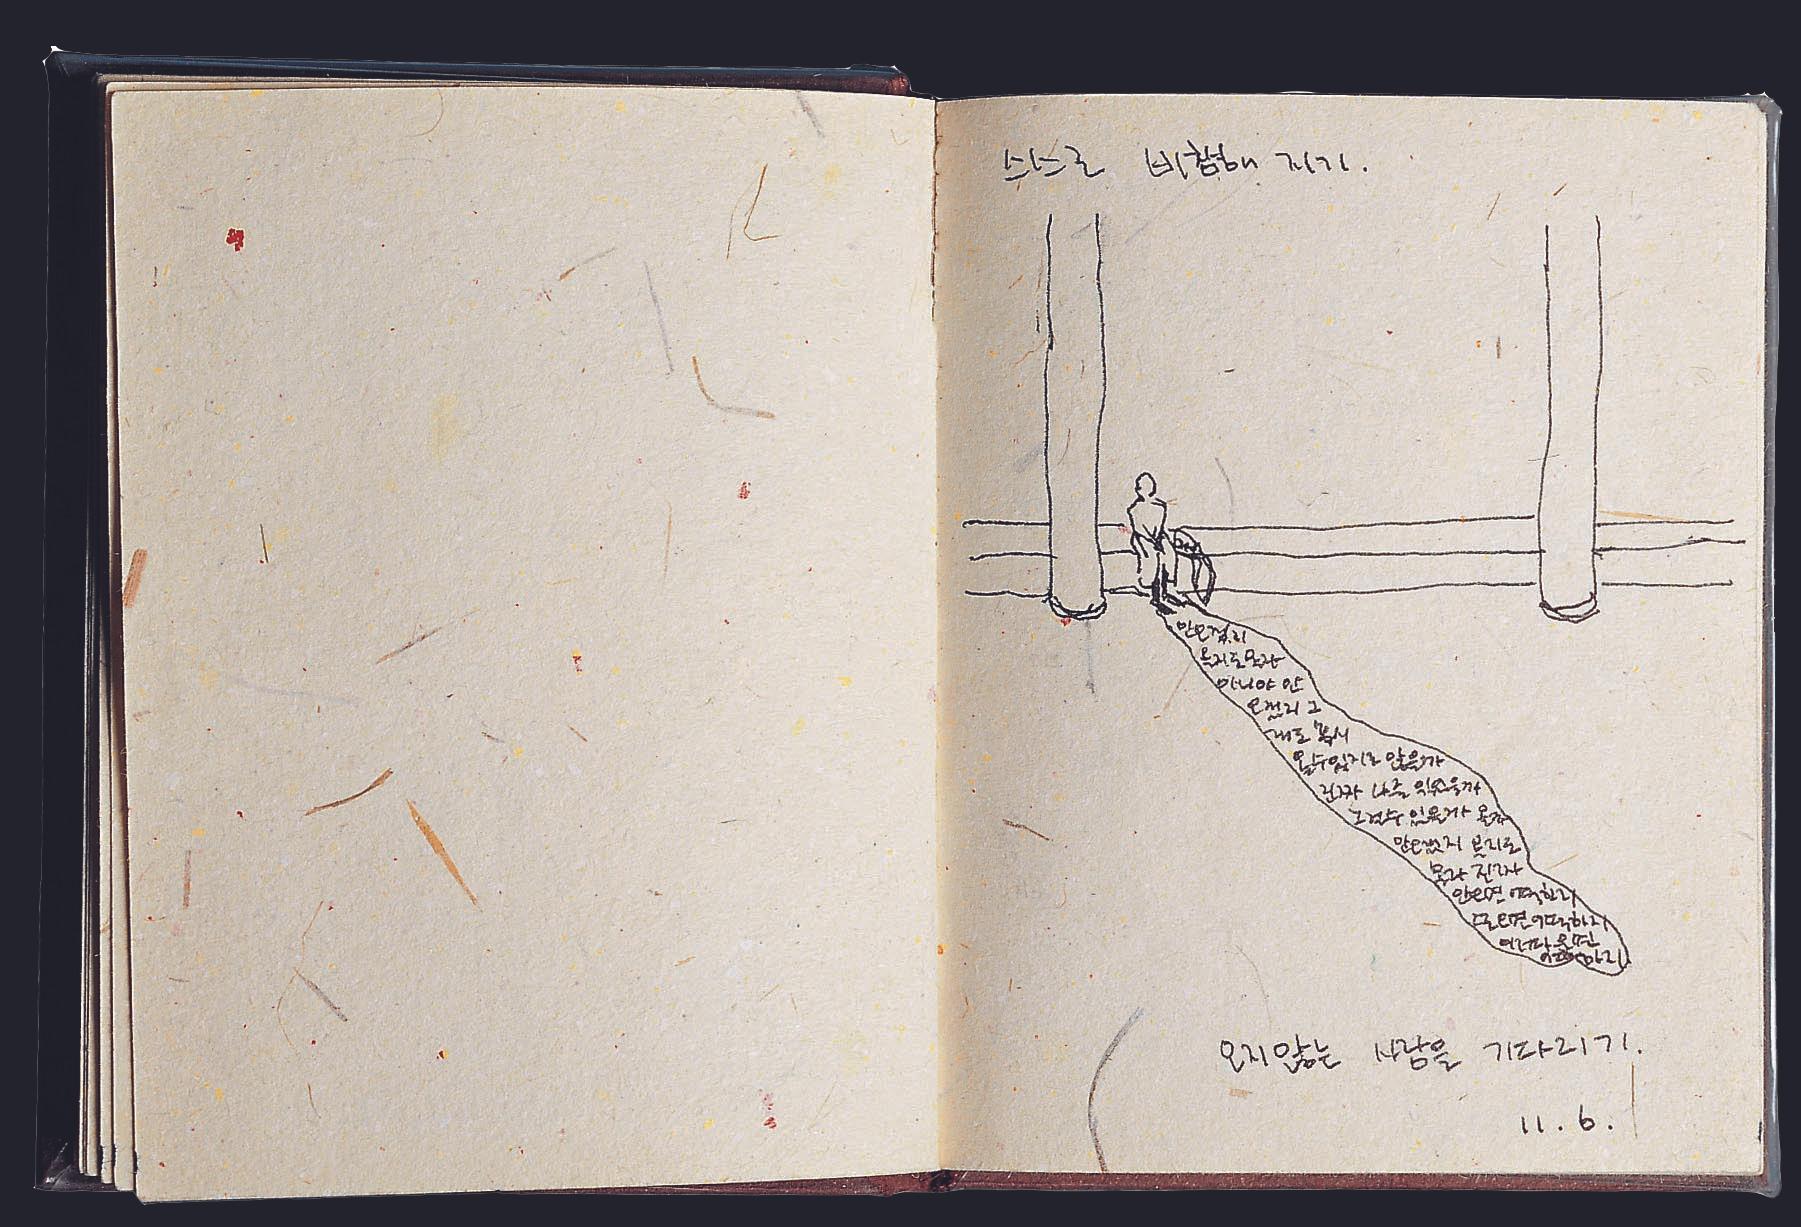 스스로 비참해 지기.
안오겠지
올지도몰라
아니야 안
오겠지 그
래도 혹시
올수있지는 않을까
진짜 나를 잊었을까
그럴수 있을까 올까
안오겠지 올지도
몰라 진짜
안오면 어떡하지
못오면어떡하지
어떡하지
오지않는 사람을 기다리기.
11. 6.